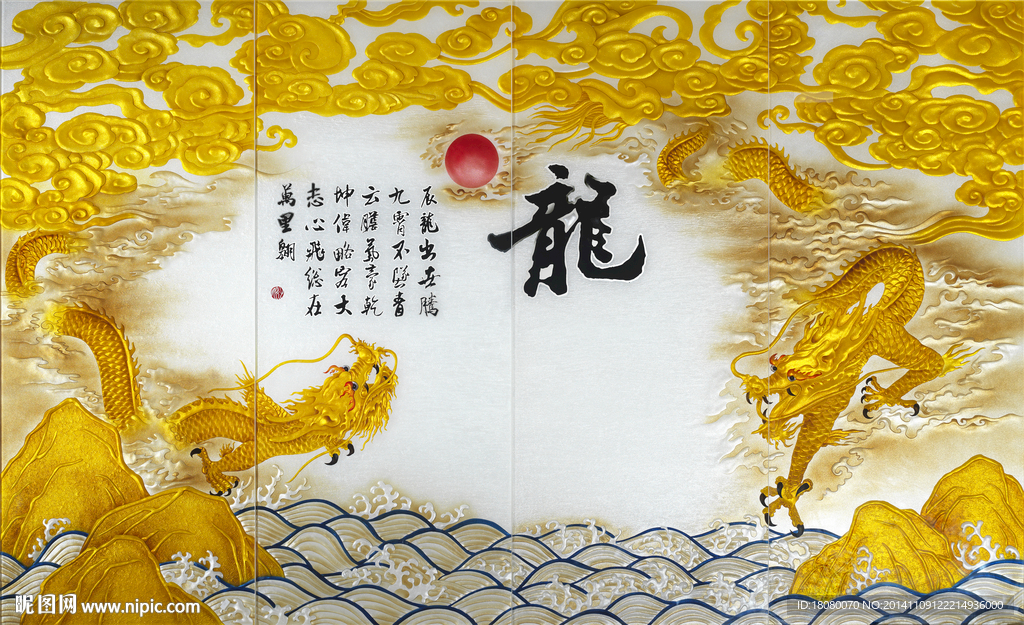 龍
辰龍出世騰
九霄不墜青
云膽氣豪乾
坤偉略容大
志心飛總在
萬里翱
昵图网 www.nipic.com
ID:18080070 NO:20141109122214936000